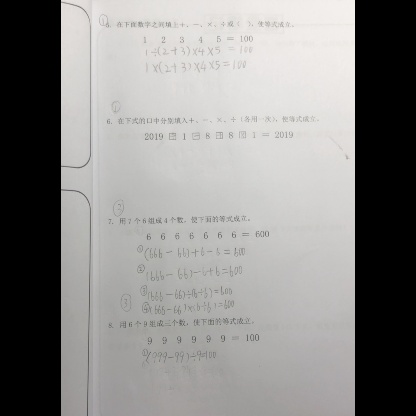 ① 5. 在下面数字之间填上＋、－、×、÷或（ ），使等式成立。
1 2 3 4 5 ＝ 100
1÷(2+3)×4×5＝100
1×(2+3)×4×5＝100
①
6. 在下式的口中分别填入＋、－、×、÷（各用一次），使等式成立。
2019 1 8 8 1 ＝ 2019
②
7. 用 7 个 6 组成 4 个数，使下面的等式成立。
6 6 6 6 6 6 6 ＝ 600
① (666－66)+6－6＝600
② (666－66)－6+6＝600
③ (666－66)÷(6÷6)＝600
③ ④ (666－66)×(6÷6)＝600
8. 用 6 个 9 组成三个数，使下面的等式成立。
9 9 9 9 9 9 ＝ 100
① (999－99)÷9＝100